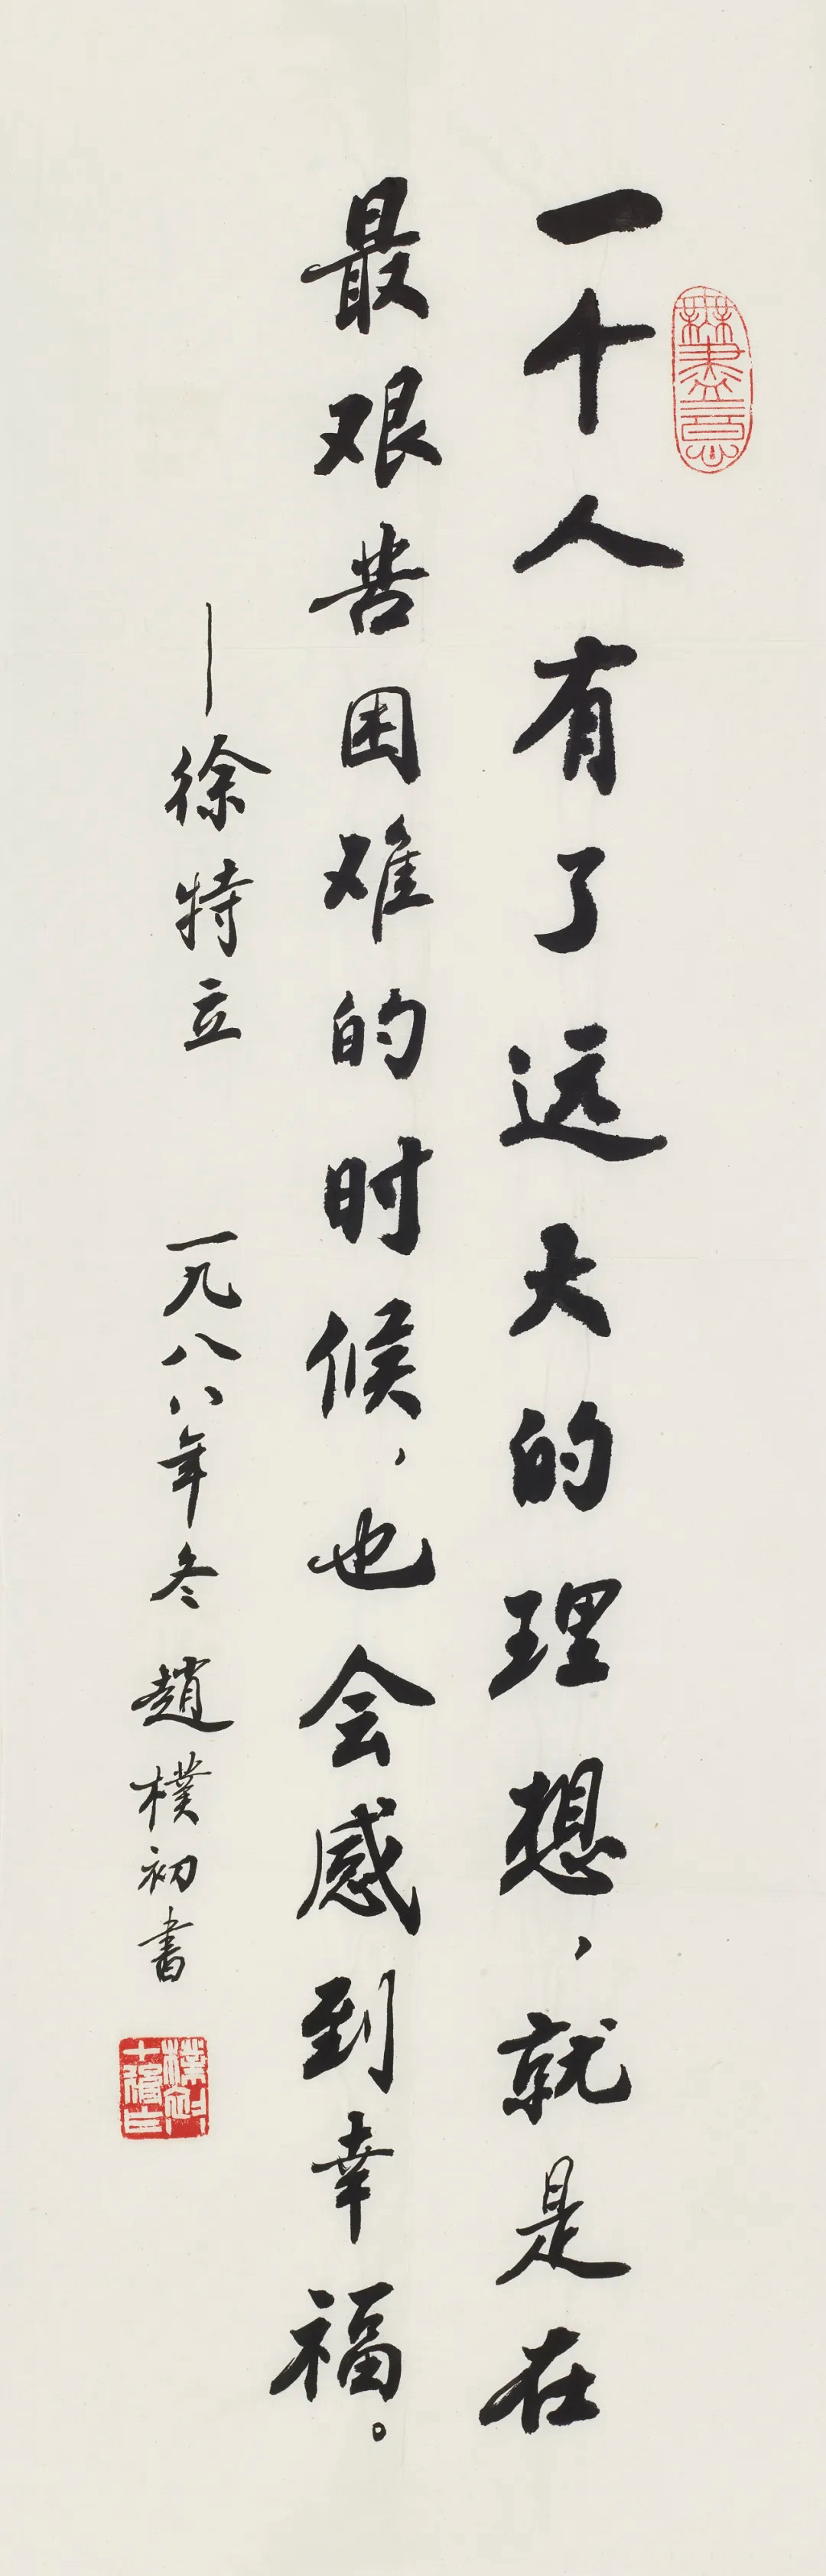 無盡意
一个人有了远大的理想，就是在
最艰苦困难的时候，也会感到幸福。
——徐特立 一九八八年冬 趙樸初書
樸初